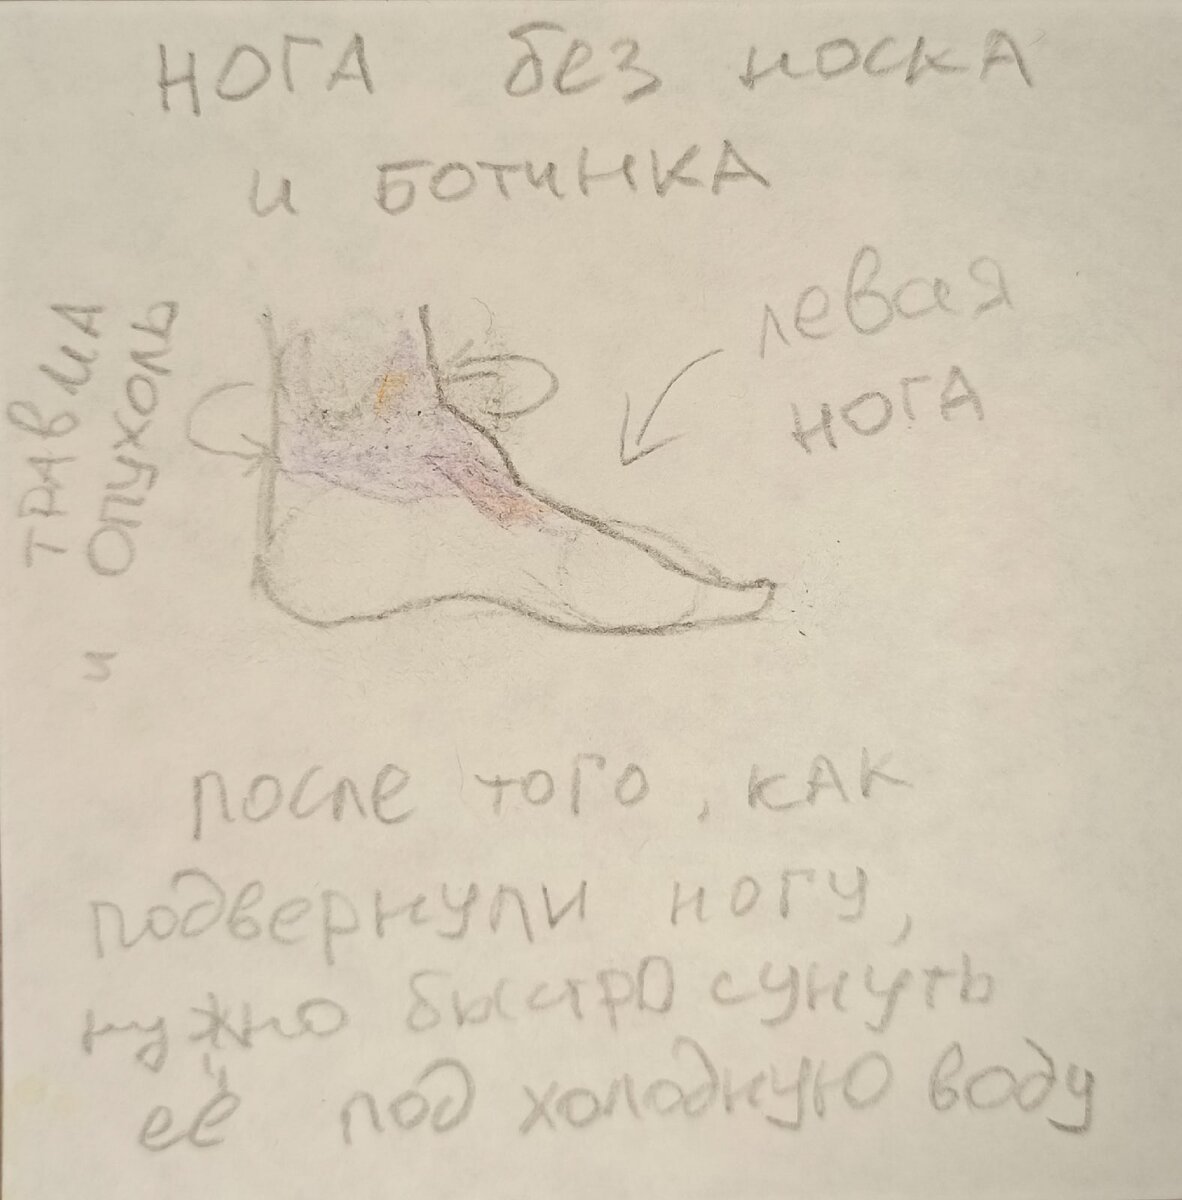 НОГА без носка
и БОТИНКА
левая
НОГА
ТРАВМА
и ОПУХОЛЬ
после того, как
подвернули ногу,
нужно быстро сунуть
её под холодную воду